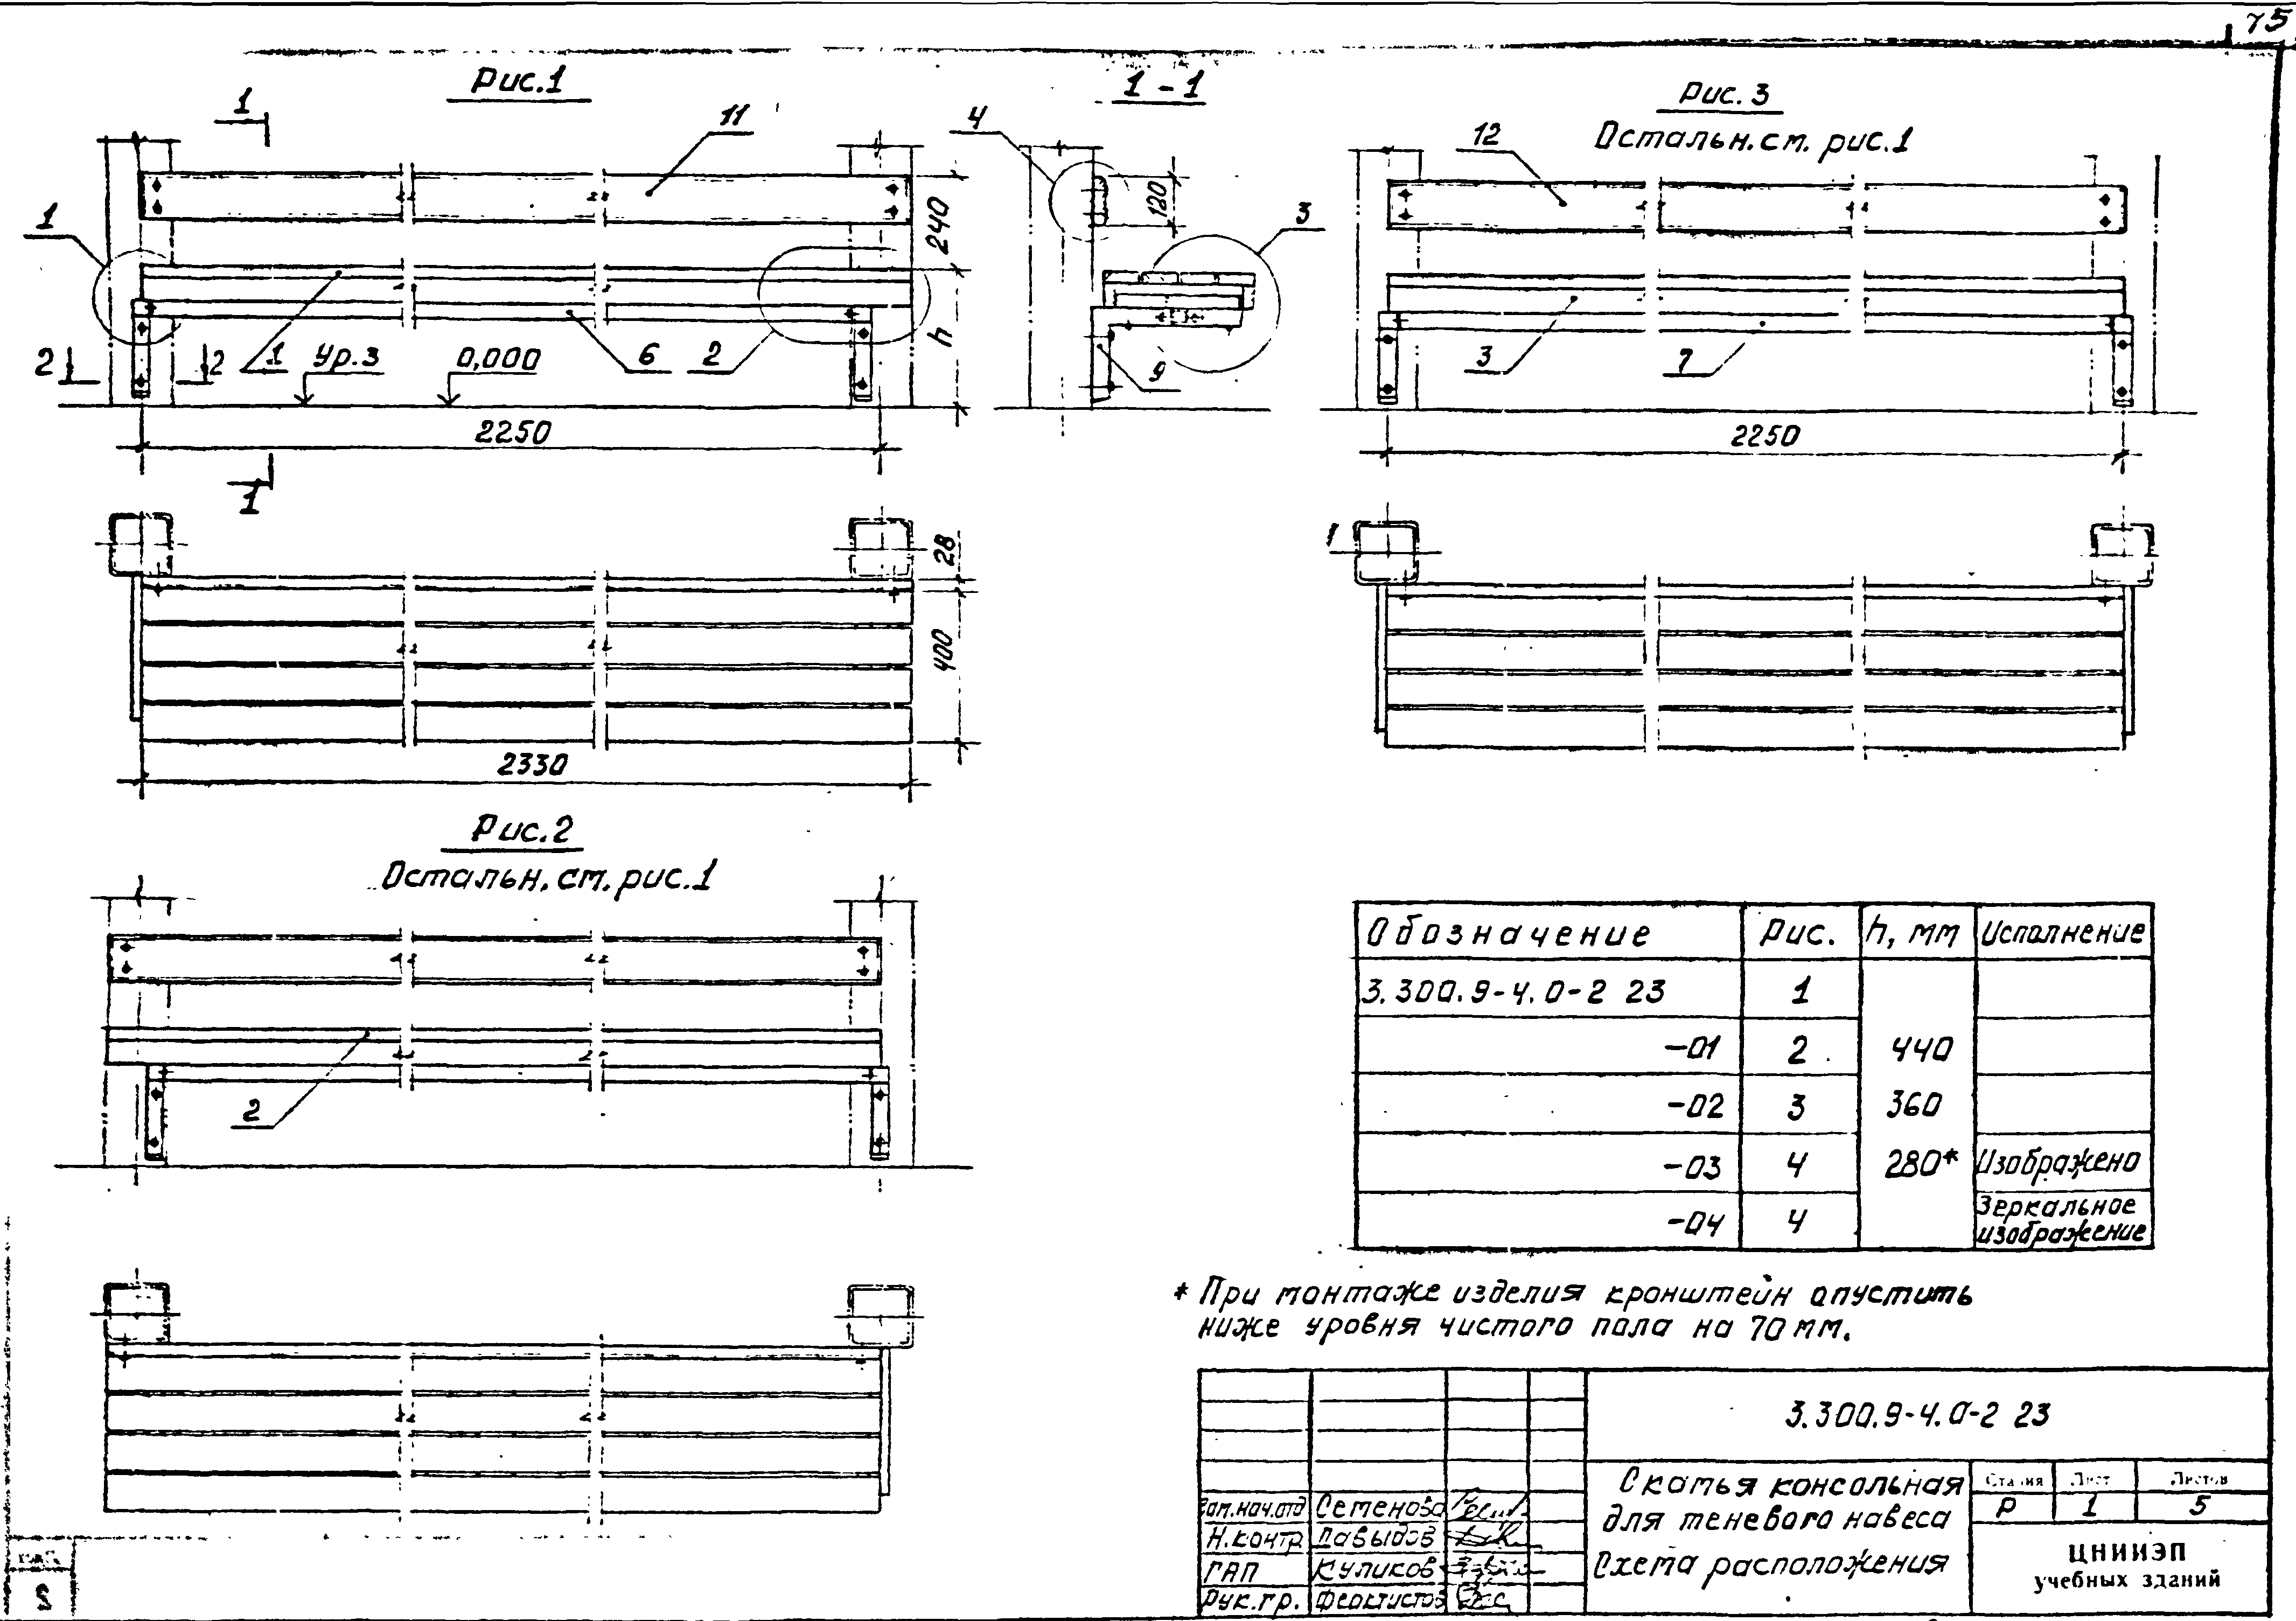 75
Рис.1
1
11
1
240
h
2
2
1
Ур.3
0,000
6
2
2250
1
28
400
2330
1-1
4
120
3
9
Рис. 3
Остальн. см. рис. 1
12
3
7
2250
Рис. 2
Остальн. см. рис. 1
2
Обозначение Рис. h, мм Исполнение
3.300.9-4.0-2 23 1
-01 2 440
-02 3 360
-03 4 280* Изображено
-04 4 Зеркальное изображение
* При монтаже изделия кронштейн опустить
ниже уровня чистого пола на 70 мм.
3.300.9-4.0-2 23
Скамья консольная
для теневого навеса
Схема расположения
Стадия Лист Листов
Р 1 5
ЦНИИЭП
учебных зданий
Зам.нач.отд Семенова
Н.контр Давыдов
ГАП Куликов
Рук.гр. Феоктистов